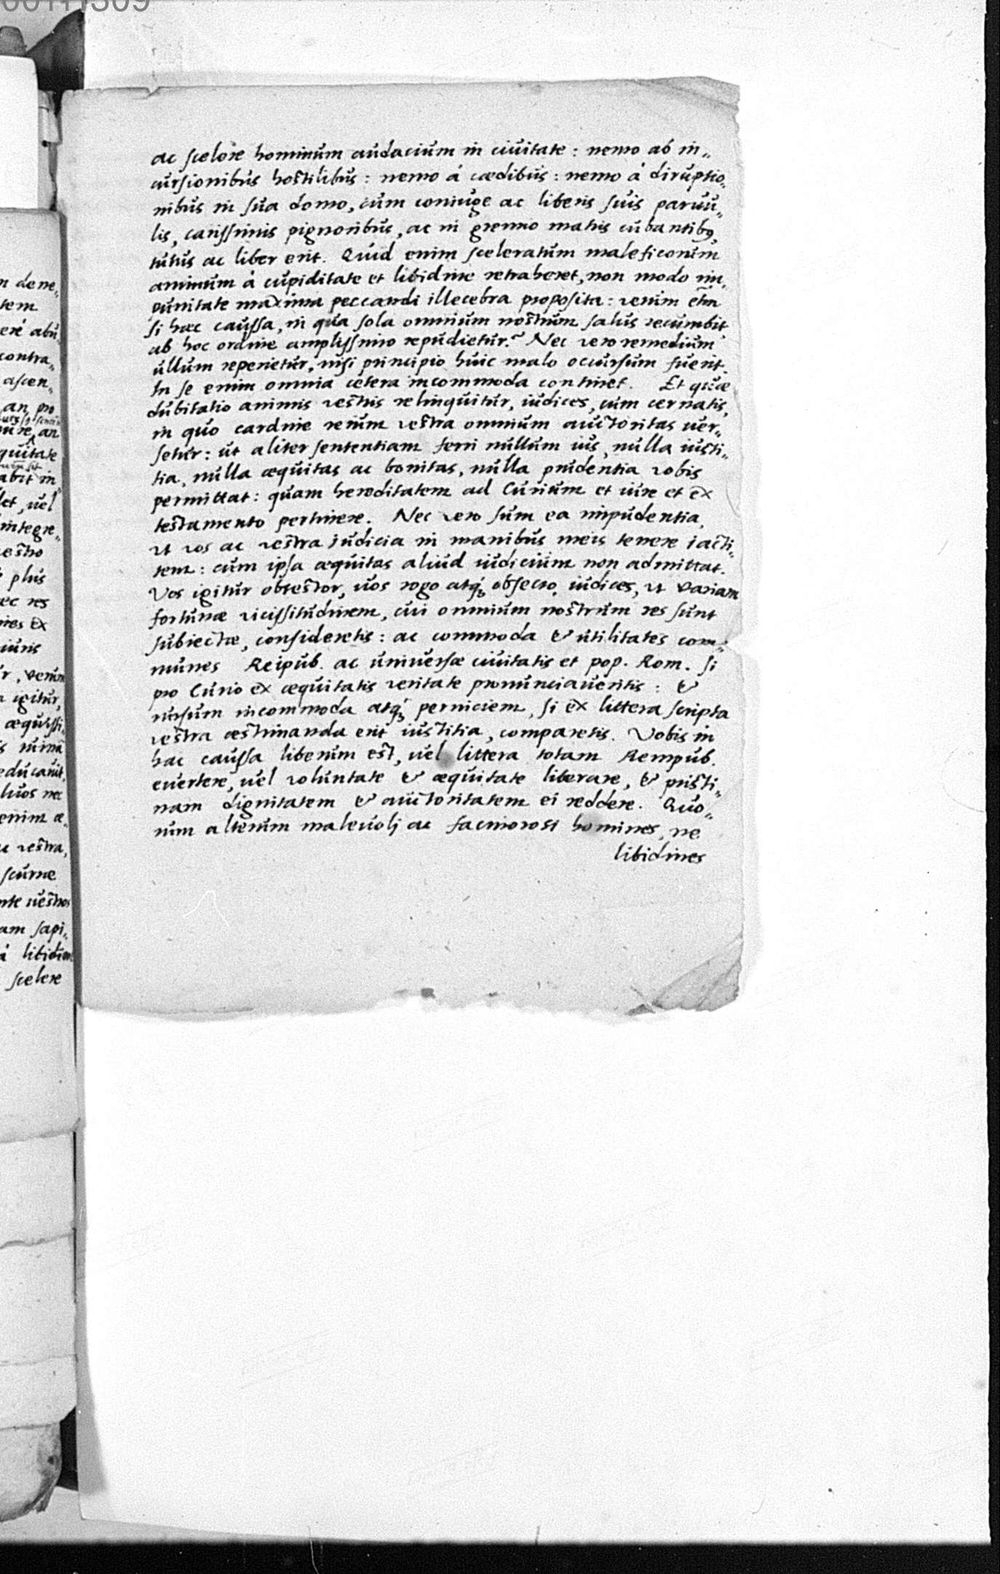 ac scelere hominum audacium in ciuitate : nemo ab in„
cursionibus hostilibus : nemo á cædibus : nemo á diruptio„
nibus in sua domo, cum coniuge ac liberis suis paruu„
lis, carissimis pignoribus, ac in gremio matris cubantibq,
tutus ac liber erit. Quid enim sceleratum maleficorum
animum á cupiditate et libidine retraheret, non modo im„
punitate maxima peccandi illecebra proposita : verùm etm̃
si hæc caussa, in qua sola omnium nostrum salus recumbit
ab hoc ordine amplissimo repudietur? Nec vero remedium
ullum reperietur, nisi principio huic malo occursum fuerit.
In se enim omnia cetera incommoda continet. Et quæ
dubitatio animis vestris relinquitur, iudices, cum cernatis,
in quo cardine rerum vestra omnium auctoritas uer„
setur : ut aliter sententiam ferri nullum ius, nulla iusti„
tia, nulla æquitas ac bonitas, nulla prudentia vobis
permittat : quam hereditatem ad Curium et iure et ex
testamento pertinere. Nec vero sum ea impudentia,
vt vos ac vestra judicia in manibus meis tenere iacti„
tem : cum ipsa æquitas aliud iudicium non admittat.
Vos igitur obtestor, uos rogo atq; obsecro, iudices, vt variam
fortunæ vicissitudinem, cui omnium nostrum res sunt
subiectæ, consideretis : ac commoda & utilitates com„
munes Reipub. ac uniuersæ ciuitatis et pop. Rom. si
pro Curio ex æquitatis veritate pronunciaueritis : &
rursum incommoda atq; perniciem, si ex littera scripta
vestra æstimanda erit iustitia, comparetis. Vobis in
hac caussa liberum est, uel littera totam Rempub.
euertere, uel voluntate & æquitate liberare, & pristi„
nam dignitatem & auctoritatem ei reddere. Quo„
rum alterum maleuolj ac facinorosi homines, ne
libidines
n dene,
tem
contra„
ascen„
an pro
an
quitate
in
let, uel
integre„
plus
ec res
ex
iuris
igitur,
æquissi„
educauit,
enim æ„
vestra,
am sapi„
á
scelere